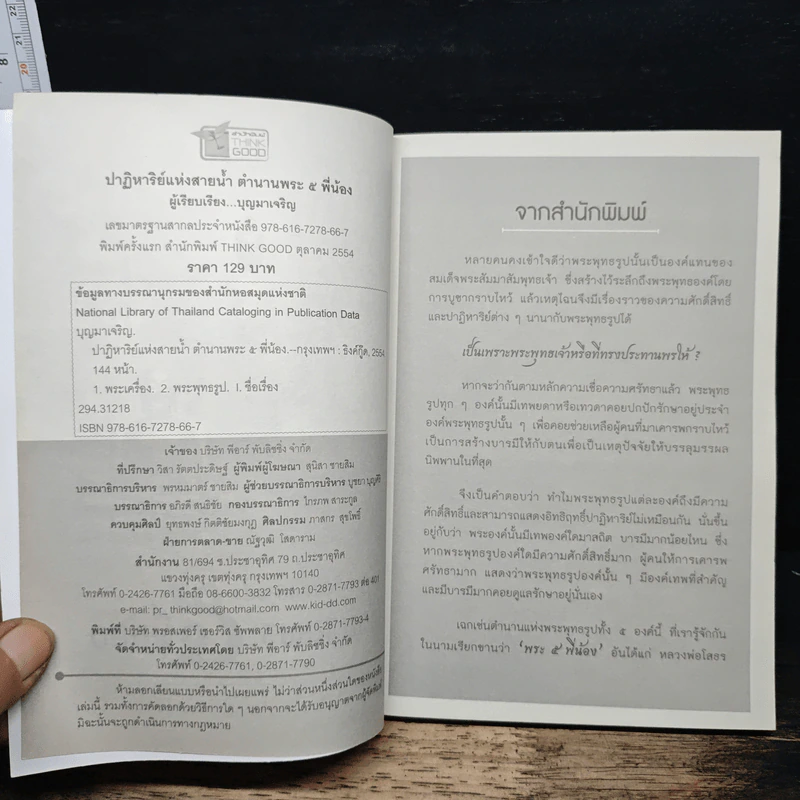 22
21
20
8
สำนักพิมพ์
THINK
GOOD
ปาฏิหาริย์แห่งสายน้ำ ตำนานพระ ๕ พี่น้อง
ผู้เรียบเรียง...บุญมาเจริญ
เลขมาตรฐานสากลประจำหนังสือ 978-616-7278-66-7
พิมพ์ครั้งแรก สำนักพิมพ์ THINK GOOD ตุลาคม 2554
ราคา 129 บาท
ข้อมูลทางบรรณานุกรมของสำนักหอสมุดแห่งชาติ
National Library of Thailand Cataloging in Publication Data
บุญมาเจริญ.
ปาฏิหาริย์แห่งสายน้ำ ตำนานพระ ๕ พี่น้อง.--กรุงเทพฯ : ธิงค์กู๊ด, 2554
144 หน้า.
1. พระเครื่อง. 2. พระพุทธรูป. I. ชื่อเรื่อง
294.31218
ISBN 978-616-7278-66-7
เจ้าของ บริษัท พีอาร์ พับลิชชิ่ง จำกัด
ที่ปรึกษา วิสา รัตตประดิษฐ์ ผู้พิมพ์ผู้โฆษณา สุนิสา ชายสิม
บรรณาธิการบริหาร พรหมมาตร์ ชายสิม ผู้ช่วยบรรณาธิการบริหาร บูชยา บุญศิริ
บรรณาธิการ อภิรดี สนธิชัย กองบรรณาธิการ ไกรภพ สาระกูล
ควบคุมศิลป์ ยุทธพงษ์ กิตติชัยมงกุฎ ศิลปกรรม ภาสกร สุขโพธิ์
ฝ่ายการตลาด-ขาย ณัฐวุฒิ โสดาราม
สำนักงาน 81/694 ซ.ประชาอุทิศ 79 ถ.ประชาอุทิศ
แขวงทุ่งครุ เขตทุ่งครุ กรุงเทพฯ 10140
โทรศัพท์ 0-2426-7761 มือถือ 08-6600-3832 โทรสาร 0-2871-7793 ต่อ 401
e-mail: pr_ thinkgood@hotmail.com www.kid-dd.com
พิมพ์ที่ บริษัท พรอสเพอร์ เซอร์วิส ซัพพลาย โทรศัพท์ 0-2871-7793-4
จัดจำหน่ายทั่วประเทศโดย บริษัท พีอาร์ พับลิชชิ่ง จำกัด
โทรศัพท์ 0-2426-7761, 0-2871-7790
ห้ามลอกเลียนแบบหรือนำไปเผยแพร่ ไม่ว่าส่วนหนึ่งส่วนใดของหนังสือ
เล่มนี้ รวมทั้งการคัดลอกด้วยวิธีการใด ๆ นอกจากจะได้รับอนุญาตจากผู้จัดพิมพ์
มิฉะนั้นจะถูกดำเนินการทางกฎหมาย
จากสำนักพิมพ์
หลายคนคงเข้าใจดีว่าพระพุทธรูปนั้นเป็นองค์แทนของ
สมเด็จพระสัมมาสัมพุทธเจ้า ซึ่งสร้างไว้ระลึกถึงพระพุทธองค์โดย
การบูชากราบไหว้ แล้วเหตุไฉนจึงมีเรื่องราวของความศักดิ์สิทธิ์
และปาฏิหาริย์ต่าง ๆ นานากับพระพุทธรูปได้
เป็นเพราะพระพุทธเจ้าหรือที่ทรงประทานพรให้ ?
หากจะว่ากันตามหลักความเชื่อความศรัทธาแล้ว พระพุทธ
รูปทุก ๆ องค์นั้นมีเทพยดาหรือเทวดาคอยปกปักรักษาอยู่ประจำ
องค์พระพุทธรูปนั้น ๆ เพื่อคอยช่วยเหลือผู้คนที่มาเคารพกราบไหว้
เป็นการสร้างบารมีให้กับตนเพื่อเป็นเหตุปัจจัยให้บรรลุมรรคผล
นิพพานในที่สุด
จึงเป็นคำตอบว่า ทำไมพระพุทธรูปแต่ละองค์ถึงมีความ
ศักดิ์สิทธิ์และสามารถแสดงอิทธิฤทธิ์ปาฏิหาริย์ไม่เหมือนกัน นั่นขึ้น
อยู่กับว่า พระองค์นั้นมีเทพองค์ใดมาสถิต บารมีมากน้อยไหน ซึ่ง
หากพระพุทธรูปองค์ใดมีความศักดิ์สิทธิ์มาก ผู้คนให้การเคารพ
ศรัทธามาก แสดงว่าพระพุทธรูปองค์นั้น ๆ มีองค์เทพที่สำคัญ
และมีบารมีมากคอยดูแลรักษาอยู่นั่นเอง
เฉกเช่นตำนานแห่งพระพุทธรูปทั้ง ๕ องค์นี้ ที่เรารู้จักกัน
ในนามเรียกขานว่า 'พระ ๕ พี่น้อง' อันได้แก่ หลวงพ่อโสธร